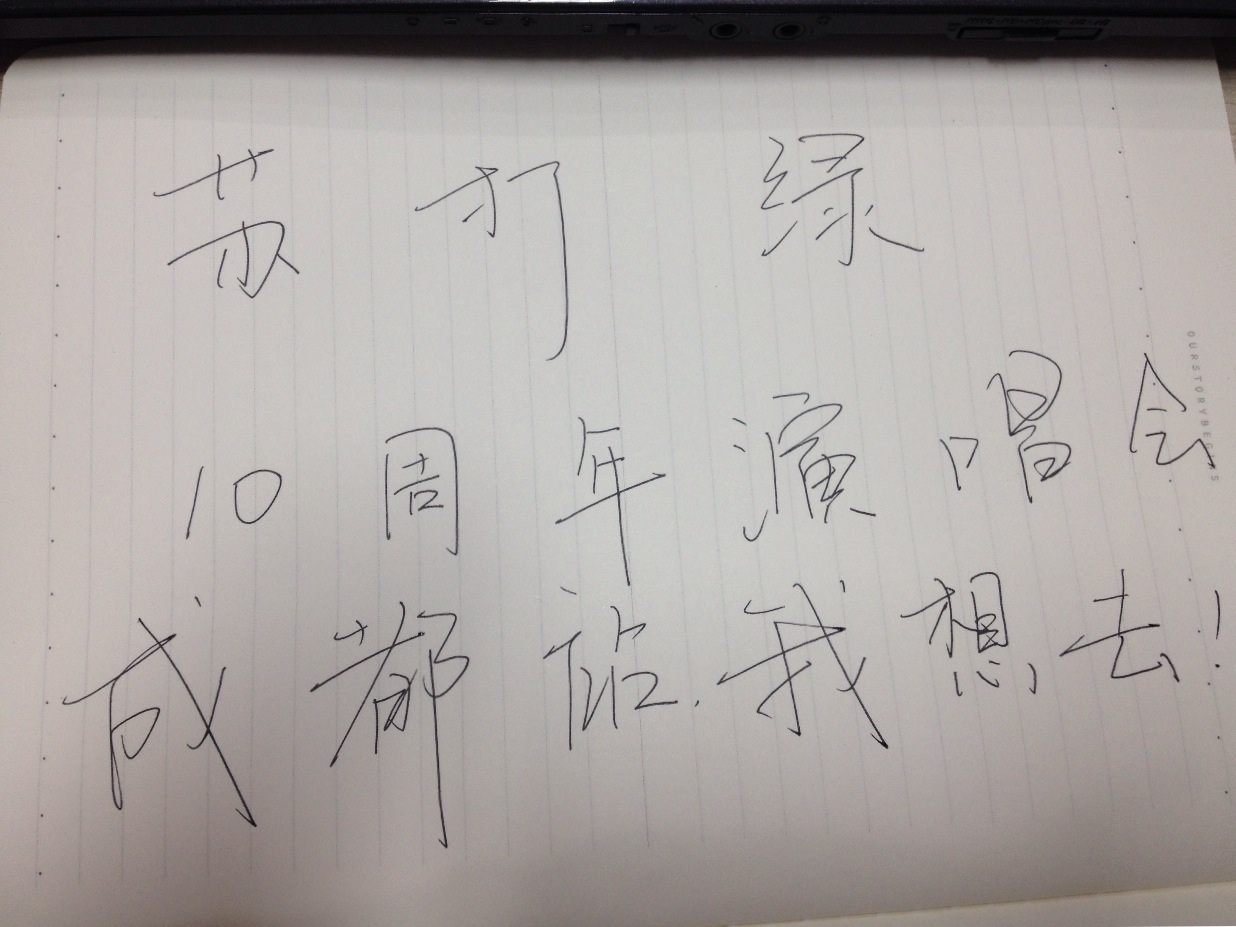 苏打绿
10周年演唱会
成都站.我想去!
OURSTORYBEGINS